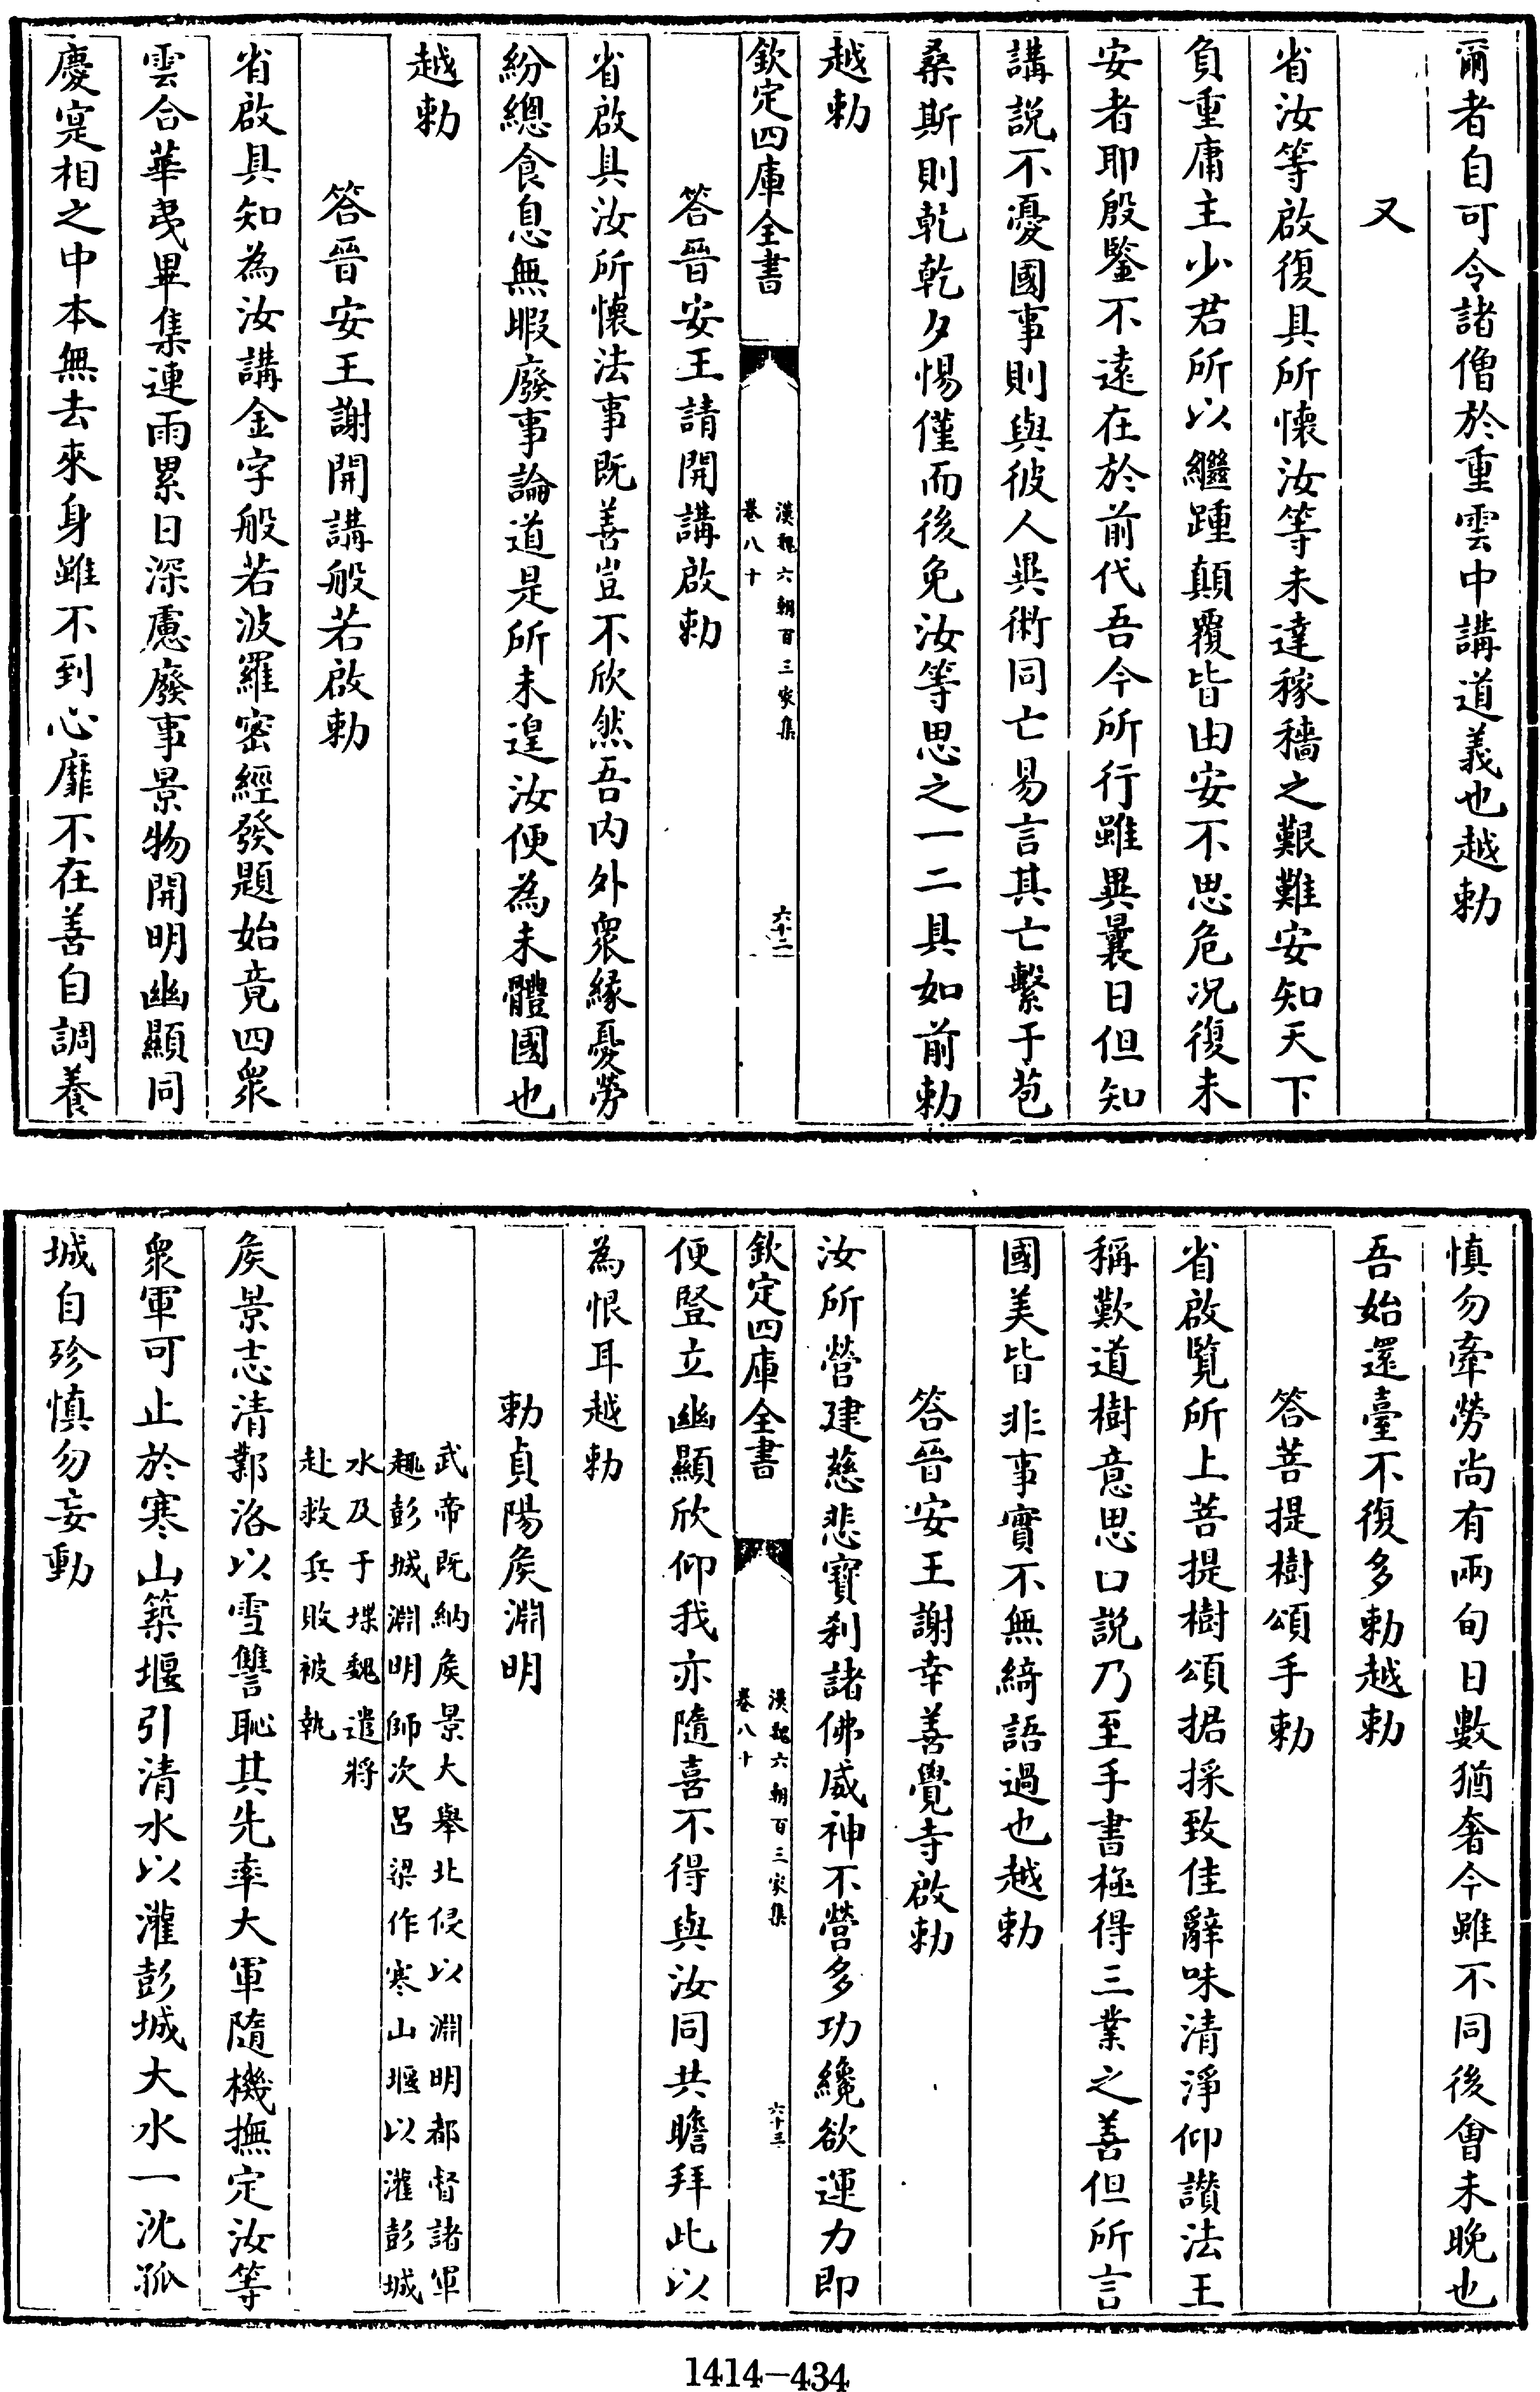 爾者自可令諸僧於重雲中講道義也越勅
又
省汝等啟復具所懷汝等未達稼穡之艱難安知天下
負重庸主少君所以繼踵顛覆皆由安不思危况復未
安者耶殷鑒不遠在於前代吾今所行雖異曩日但知
講説不憂國事則與彼人異術同亡易言其亡繫于苞
桑斯則乾乾夕惕僅而後免汝等思之一二具如前勅
越勅
欽定四庫全書
漢魏六朝百三家集
卷八十
六十二
答晉安王請開講啟勅
省啟具汝所懷法事既善豈不欣然吾内外衆緣憂勞
紛總食息無暇廢事論道是所未遑汝便為未體國也
越勅
答晉安王謝開講般若啟勅
省啟具知為汝講金字般若波羅密經發題始竟四衆
雲合華夷畢集連雨累日深慮廢事景物開明幽顯同
慶寔相之中本無去來身雖不到心靡不在善自調養
慎勿牽勞尚有兩旬日數猶奢今雖不同後會未晚也
吾始還臺不復多勅越勅
答菩提樹頌手勅
省啟覽所上菩提樹頌据採致佳辭味清淨仰讃法王
稱歎道樹意思口説乃至手書極得三業之善但所言
國美皆非事實不無綺語過也越勅
答晉安王謝幸善覺寺啟勅
汝所營建慈悲寶刹諸佛威神不營多功纔欲運力即
欽定四庫全書
漢魏六朝百三家集
卷八十
六十三
便豎立幽顯欣仰我亦隨喜不得與汝同共瞻拜此以
為恨耳越勅
勅貞陽矦淵明
武帝既納矦景大舉北侵以淵明都督諸軍
趣彭城淵明師次呂梁作寒山堰以灌彭城
水及于堞魏遣將
赴救兵敗被執
矦景志清鄴洛以雪讐恥其先率大軍隨機撫定汝等
衆軍可止於寒山築堰引清水以灌彭城大水一沈孤
城自殄慎勿妄動
1414-434